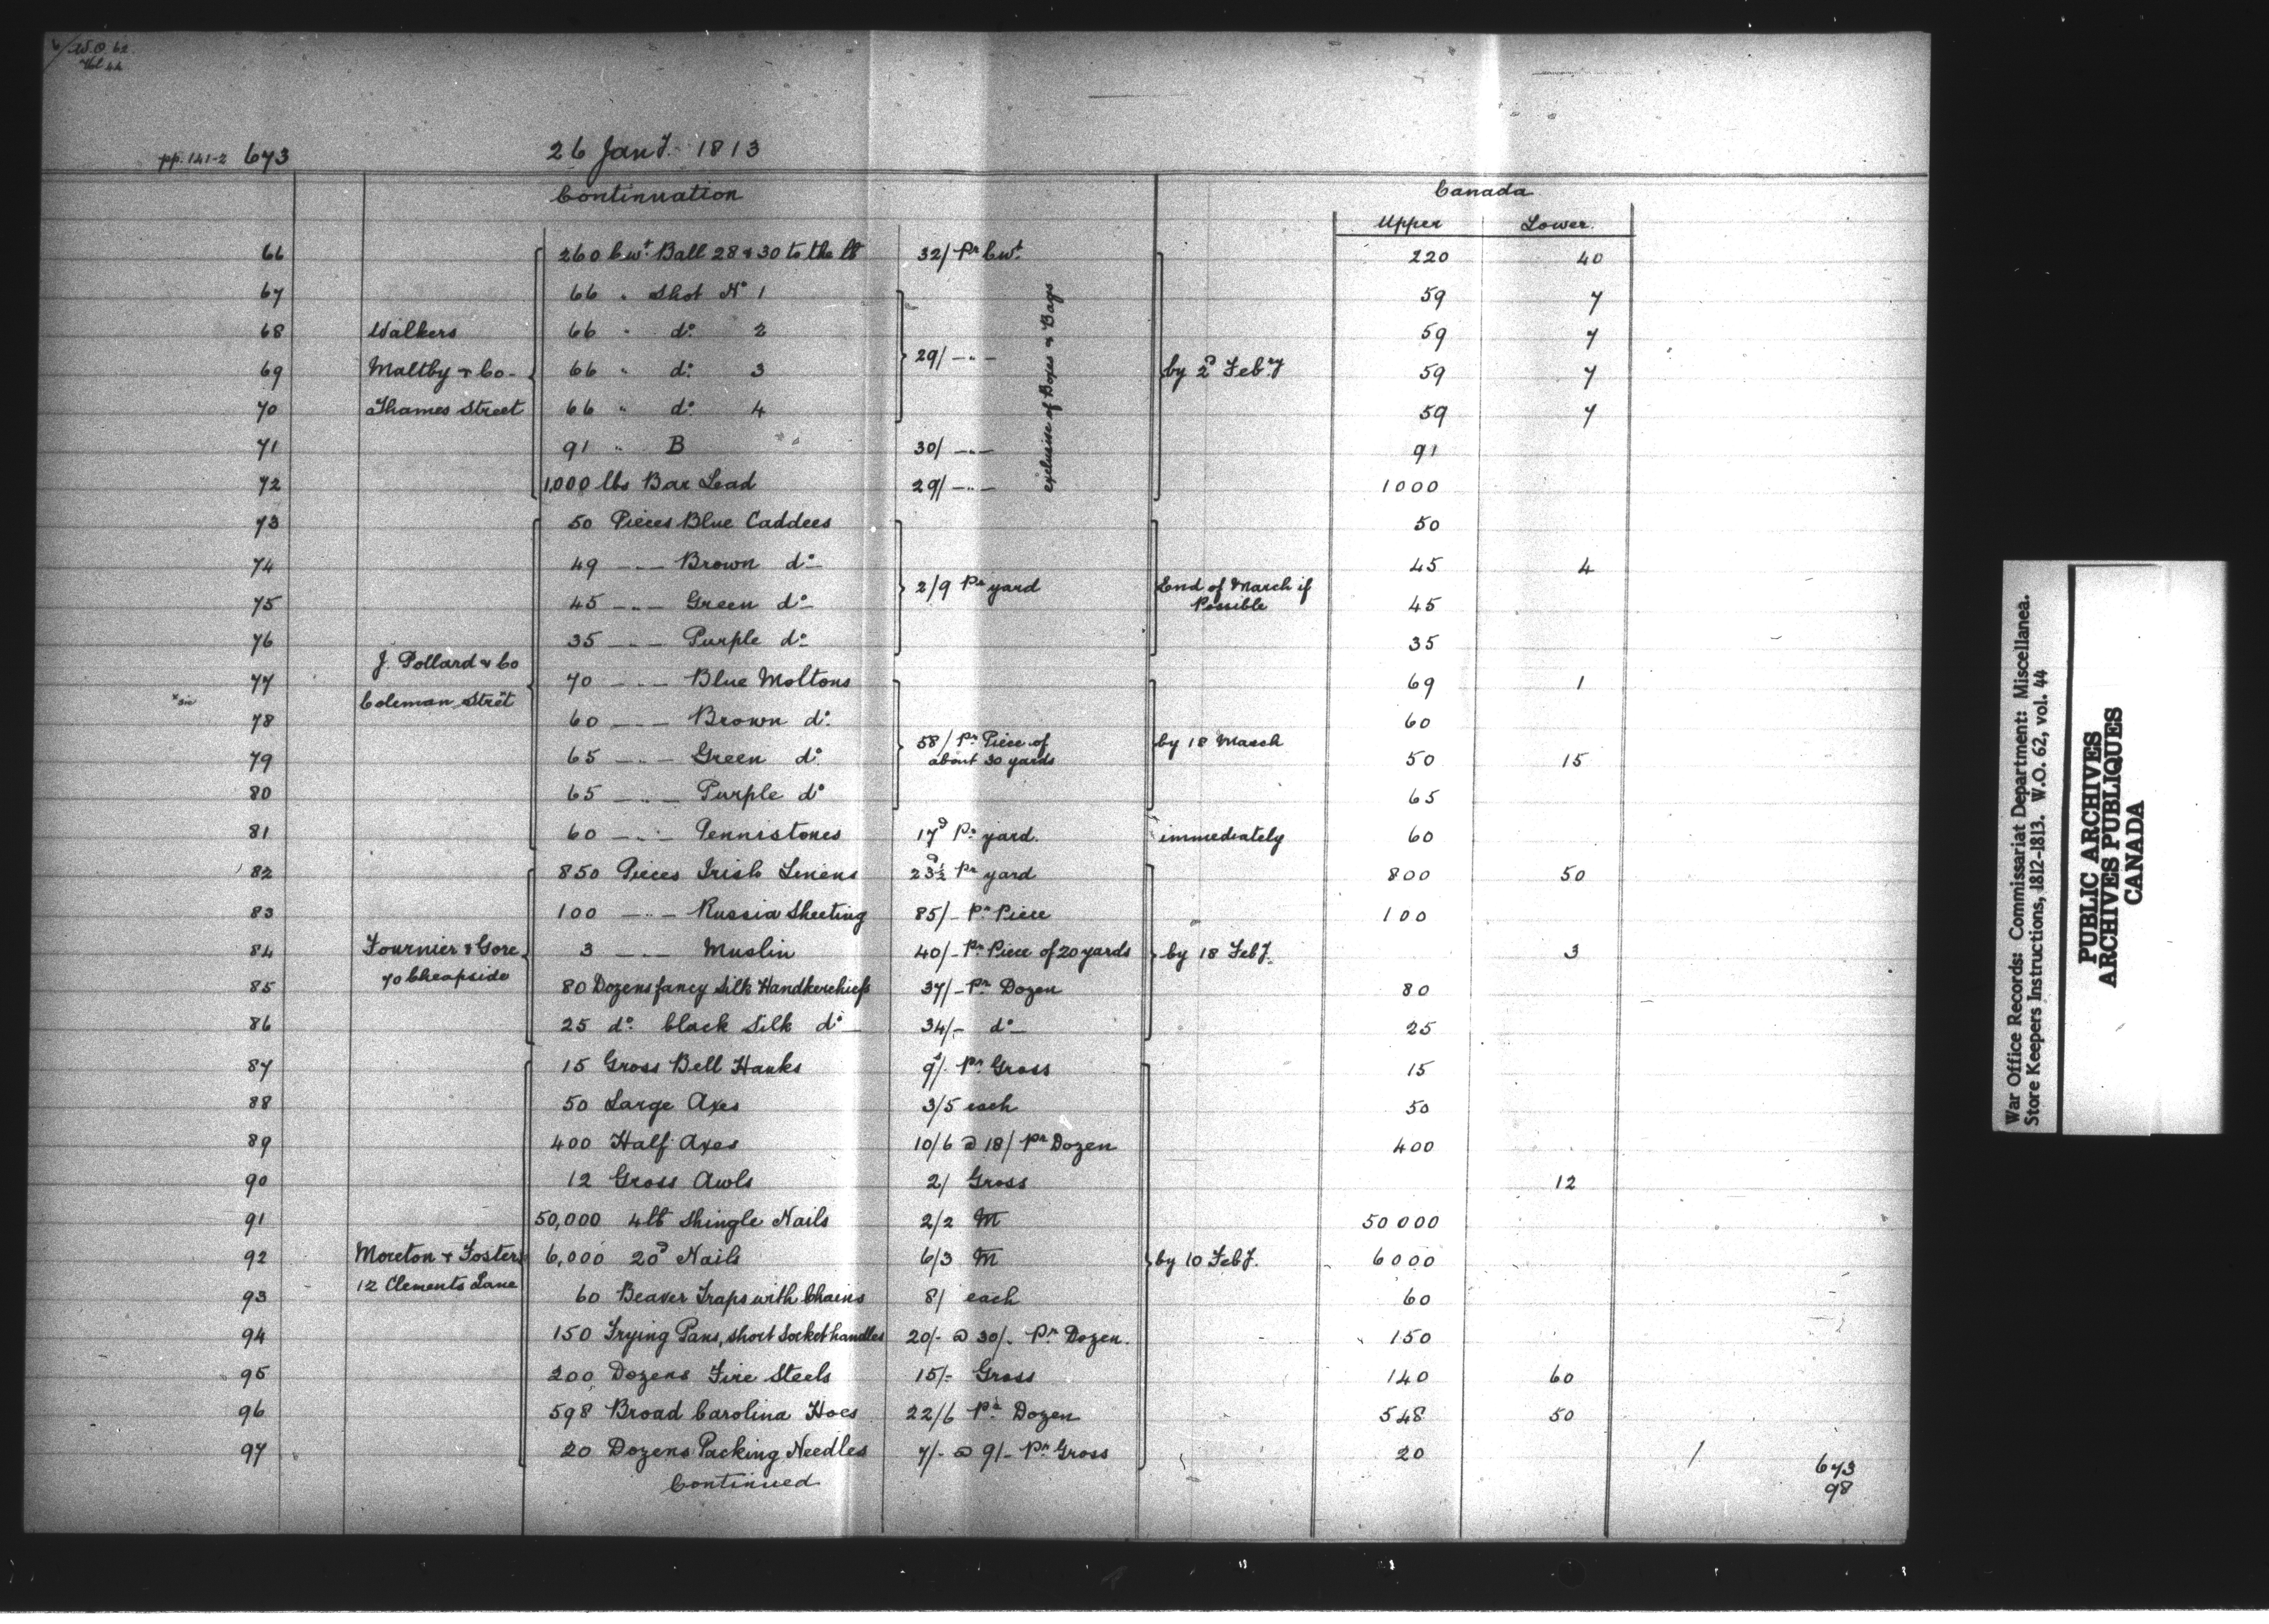 W.O. 62
Vol 44
pp. 141-2 673 26 Jany. 1813
Continuation Canada
Upper Lower
66 260 Cwt. Ball 28 & 30 to the lb 32/ Pr Cwt. 220 40
67 66 " Shot No 1 59 7
68 Walkers 66 " do. 2 59 7
69 Maltby & Co - 66 " do. 3 29/ -"- by 2d Febry 59 7
70 Thames Street 66 " do. 4 59 7
71 91 " B 30/ -"- 91
72 1,000 lbs Bar Lead 29/ -"- 1000
exclusive of Boxes & Bags
73 50 Pieces Blue Caddees 50
74 49 -"- Brown do- 45 4
75 45 -"- Green do- 2/9 Pr yard End of March if Possible 45
76 35 -"- Purple do- 35
77 J. Pollard & Co 70 -"- Blue Moltons 69 1
78 Coleman Stret 60 -"- Brown do. 60
79 65 -"- Green do 58/ Pr. Piece of about 30 yards by 18 March 50 15
80 65 -"- Purple do 65
81 60 -"- Pennistones 17d Pr. yard. immediately 60
82 850 Pieces Irish Linens 23½d Pr yard 800 50
83 100 -"- Russia Sheeting 85/- Pr. Piece 100
84 Fournier & Gore 3 -"- Muslin 40/- Pr. Piece of 20 yards by 18 Feby. 3
85 70 Cheapside 80 Dozens fancy Silk Handkerchiefs 37/- Pr. Dozen 80
86 25 do. black Silk do- 34/- do- 25
87 15 Gross Bell Hanks 9/. Pr. Gross 15
88 50 Large Axes 3/5 each 50
89 400 Half Axes 10/6 @ 18/ Pr Dozen 400
90 12 Gross Awls 2/ Gross 12
91 50,000 4lb Shingle Nails 2/2 M 50000
92 Moreton & Fosters 6,000 20d Nails 6/3 M by 10 Feby. 6000
93 12 Clements Lane 60 Beaver Traps with Chains 8/ each 60
94 150 Frying Pans, short Socket handles 20/- @ 30/- Pr. Dozen. 150
95 200 Dozens Fire Steels 15/- Gross 140 60
96 598 Broad Carolina Hoes 22/6 Pr. Dozen 548 50
97 20 Dozens Packing Needles 7/- @ 9/- Pr. Gross 20
Continued
673
98
War Office Records: Commissariat Department: Miscellanea.
Store Keepers Instructions, 1812-1813. W.O. 62, vol. 44
PUBLIC ARCHIVES
ARCHIVES PUBLIQUES
CANADA